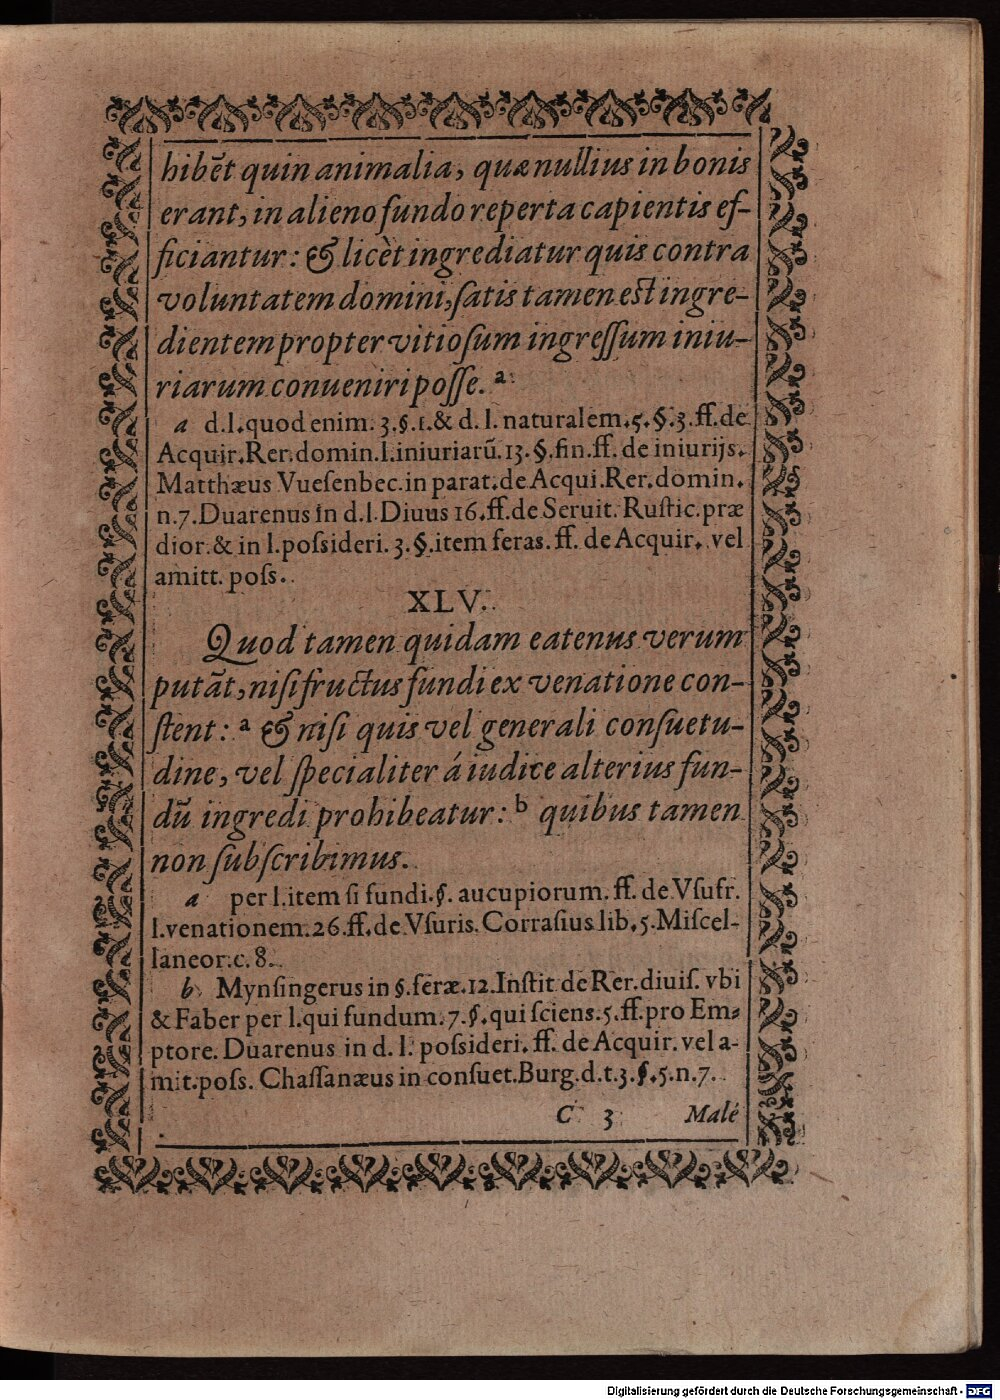 hibēt quin animalia, quæ nullius in bonis
erant, in alieno fundo reperta capientis ef-
ficiantur: & licèt ingrediatur quis contra
voluntatem domini, ſatis tamen eſt ingre-
dientem propter vitioſum ingreſſum iniu-
riarum conueniri poſſe. a
a d.l.quod enim. 3.§.1.& d. l. naturalem.5.§.3.ff.de
Acquir.Rer.domin.l.iniuriarū.13.§.fin.ff. de iniurijs.
Matthæus Vueſenbec.in parat.de Acqui.Rer.domin.
n.7.Duarenus in d.l.Diuus 16.ff.de Seruit. Ruſtic.præ
dior.& in l.poſsideri. 3.§.item feras. ff. de Acquir. vel
amitt. poſs.
XLV.
Quod tamen quidam eatenus verum
putāt, niſi fructus fundi ex venatione con-
ſtent: a & niſi quis vel generali conſuetu-
dine, vel ſpecialiter á iudice alterius fun-
dū ingredi prohibeatur: b quibus tamen
non ſubſcribimus.
a per l.item ſi fundi.§. aucupiorum. ff. de Vſufr.
l.venationem.26.ff.de Vſuris. Corraſius lib.5.Miſcel-
laneor.c. 8.
b Mynſingerus in §.feræ.12.Inſtit de Rer.diuiſ. vbi
& Faber per l.qui fundum.7.§.qui ſciens.5.ff.pro Em-
ptore. Duarenus in d. l. poſsideri. ff. de Acquir. vel a-
mit.poſs. Chaſſanæus in conſuet.Burg.d.t.3.§.5.n.7.
C 3 Malé
Digitalisierung gefördert durch die Deutsche Forschungsgemeinschaft - DFG